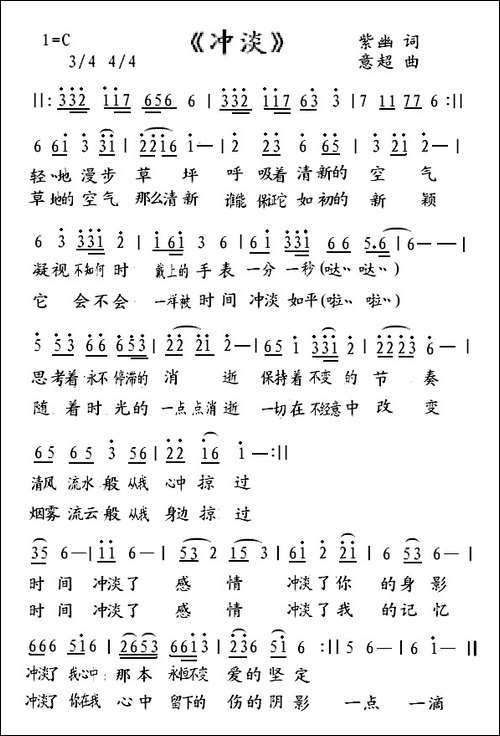 1=C 《冲淡》 紫幽 词
3/4 4/4 意超 曲
||: 332 117 656 6 | 332 117 63 3 | 7 11 77 6 :||
6 61 3 31 | 2216 1— | 2 23 6 65 | 3 21 2— |
轻、地 漫步 草 坪 呼 吸着 清新的 空 气
草地的 空气 那么清新 谁能 保证它 如初的 新 颖
6 3 331 2 | 1 61 3 6 | 61 331 66 5.6 | 6—— |
凝视 不知何时 戴上的 手表 一分 一秒(哒、、哒、、)
它 会不会 一样被 时间 冲淡 如平(啦、、啦、、)
5 53 66 665 3 | 22 21 2— | 65 1 331 2 | 2223 6— |
思考着 永不 停滞的 消 逝 保持着 不变 的 节 奏
随 着时 光的 一点点消逝 一切在 不经意中 改 变
65 65 3 56 | 22 16 1—:||
清风 流水 般 从我 心中 掠 过
烟雾 流云 般 从我 身边 掠 过
35 6— | 11 6— | 53 2 15 3 | 61 2 21 | 6 53 6— |
时 间 冲淡了 感 情 冲淡了你 的身影
时 间 冲淡了 感 情 冲淡了我 的记忆
666 516 | 2653 6613 | 236 51 6 :|| 5 6— | 6 1— ||
冲淡了 我心中: 那 本 永恒不变 爱的坚定
冲淡了 你在我 心中 留下的 伤的阴影 一点 一滴